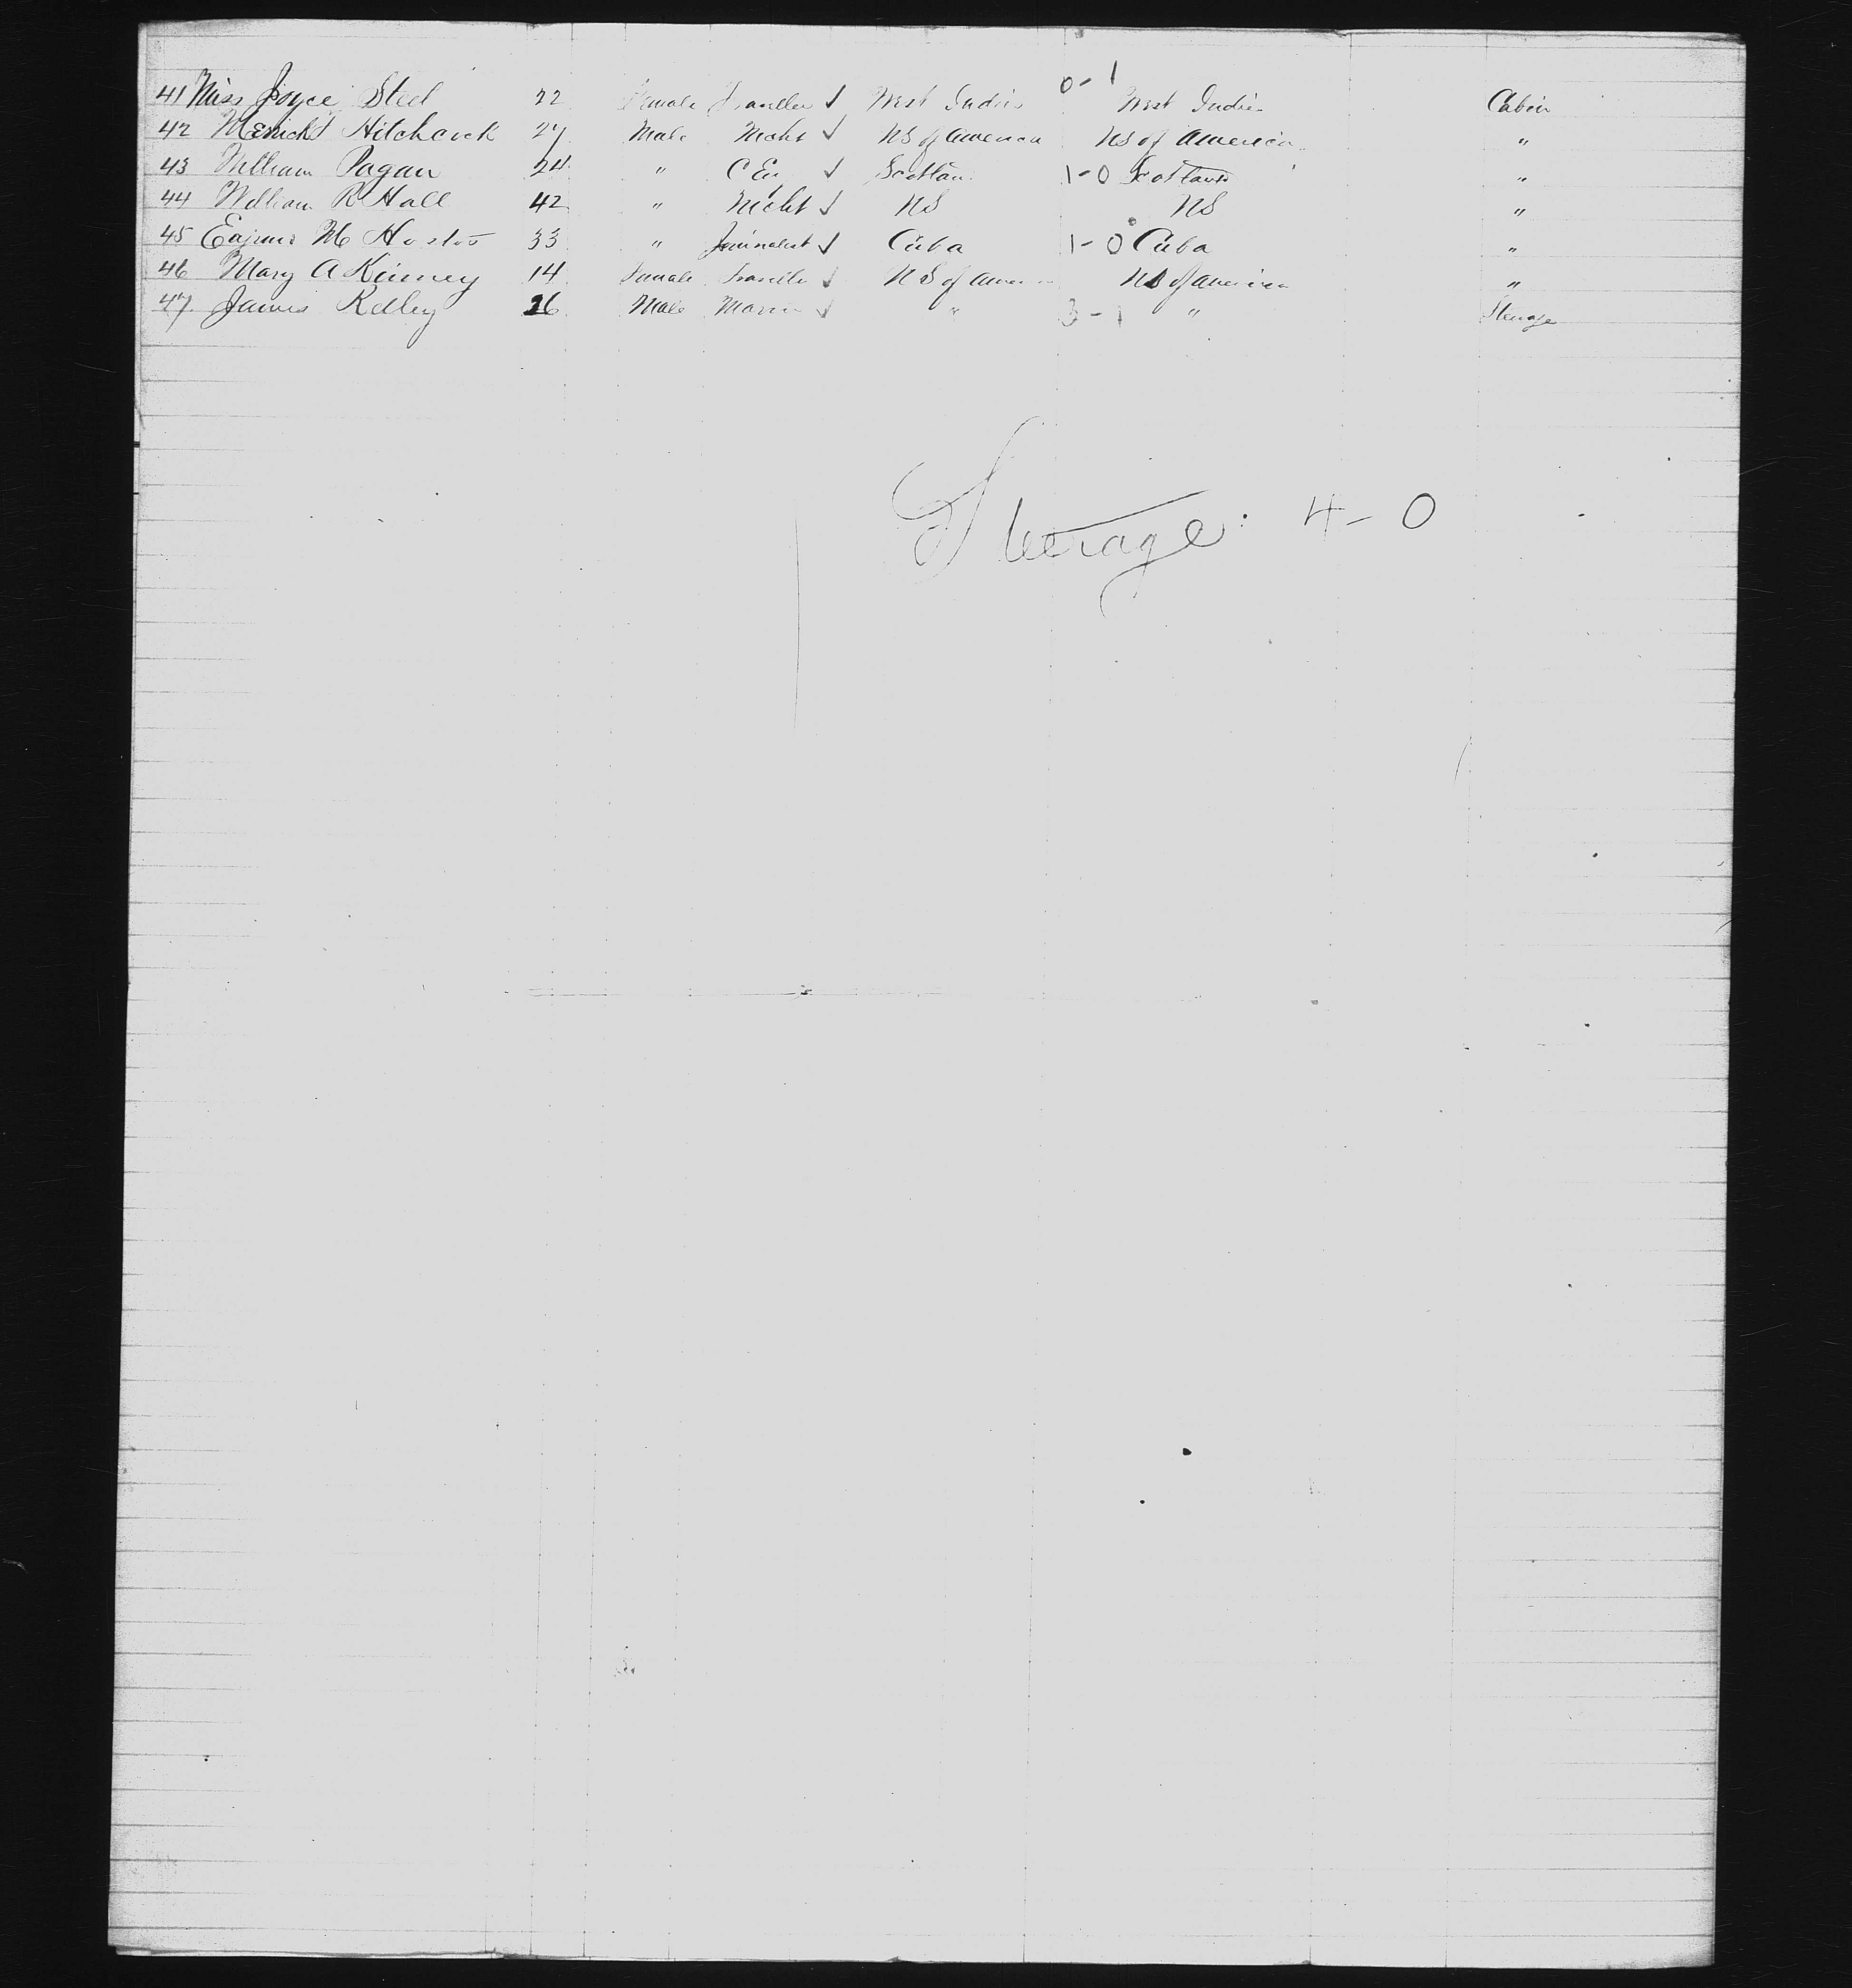 0-1
41 Miss Joyce Steel 22 Female Traveller ✓ West Indies West Indies Cabin
42 Hitchcock 27 Male Mcht ✓ US of America US of America "
43 William Pagan 24 " C En ✓ Scotlan 1-0 Scotland "
44 William R Hall 42 " Mcht ✓ US US "
45 M Hostos 33 " Journalist ✓ Cuba 1-0 Cuba "
46 Mary A Kinney 14 Female Traveller ✓ US of America US of America "
47 James Kelley 26 Male ✓ " 3-1 " Steerage
Steerage: 4-0